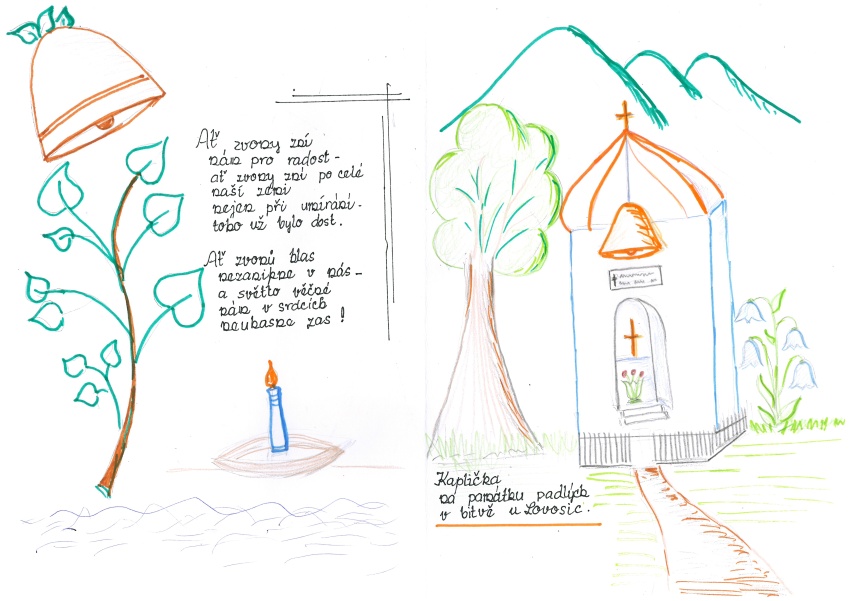 Ať zvony zní
nám pro radost -
ať zvony zní po celé
naší zemi
nejen při umírání -
toho už bylo dost.
Ať zvonů hlas
nezanikne v nás -
a světlo věčné
nám v srdcích
neuhasne zas !
Kaplička
na památku padlých
v bitvě u Lovosic.